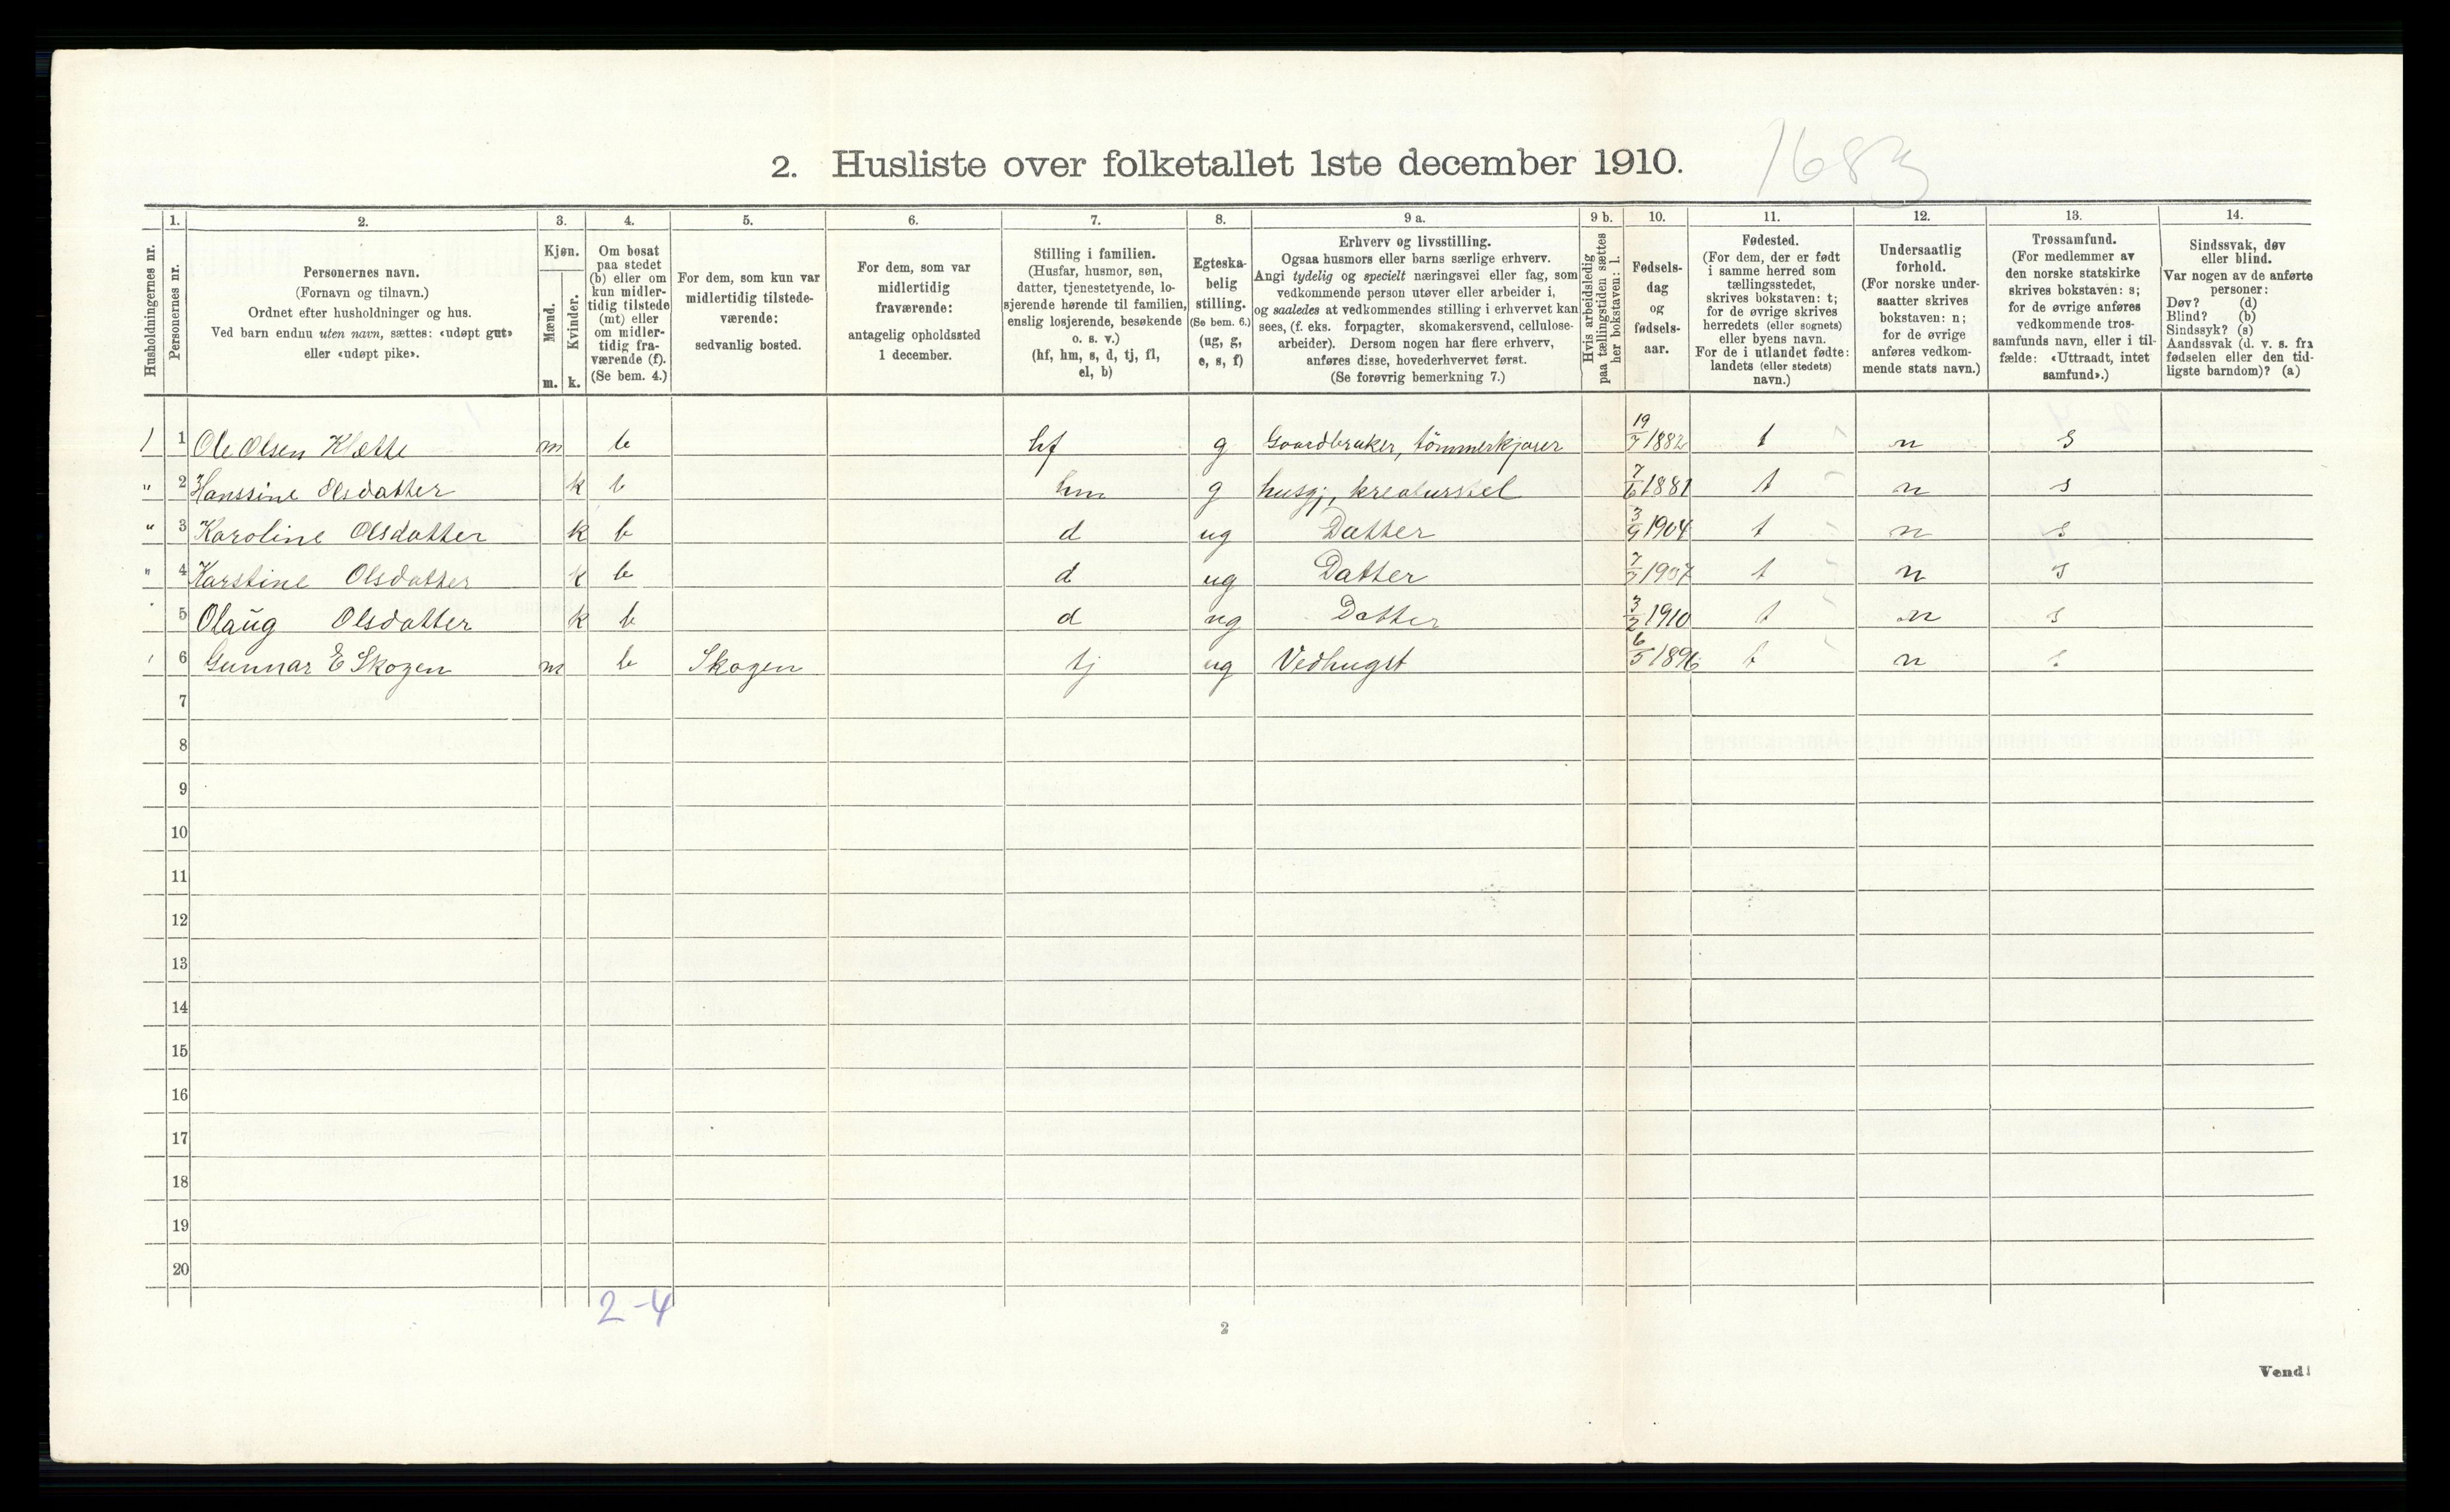 1683
2. Husliste over folketallet 1ste december 1910.
1. 2. 3. 4. 5. 6. 7. 8. 9 a. 9 b. 10. 11. 12. 13. 14.
Husholdningernes nr.
Personernes nr.
Personernes navn.
(Fornavn og tilnavn.)
Ordnet efter husholdninger og hus.
Ved barn endnu uten navn, sættes: «udøpt gut»
eller «udøpt pike».
Kjøn.
Mænd.
Kvinder.
m. k.
Om bosat
paa stedet
(b) eller om
kun midler-
tidig tilstede
(mt) eller
om midler-
tidig fra-
værende (f).
(Se bem. 4.)
For dem, som kun var
midlertidig tilstede-
værende:
sedvanlig bosted.
For dem, som var
midlertidig
fraværende:
antagelig opholdssted
1 december.
Stilling i familien.
(Husfar, husmor, søn,
datter, tjenestetyende, lo-
sjerende hørende til familien,
enslig losjerende, besøkende
o. s. v.)
(hf, hm, s, d, tj, fl,
el, b)
Egteska-
belig
stilling.
(Se bem. 6.)
(ug, g,
e, s, f)
Erhverv og livsstilling.
Ogsaa husmors eller barns særlige erhverv.
Angi tydelig og specielt næringsvei eller fag, som
vedkommende person utøver eller arbeider i,
og saaledes at vedkommendes stilling i erhvervet kan
sees, (f. eks. forpagter, skomakersvend, cellulose-
arbeider). Dersom nogen har flere erhverv,
anføres disse, hovederhvervet først.
(Se forøvrig bemerkning 7.)
Hvis arbeidsledig
paa tællingstiden sættes
her bokstaven: l.
Fødsels-
dag
og
fødsels-
aar.
Fødested.
(For dem, der er født
i samme herred som
tællingsstedet,
skrives bokstaven: t;
for de øvrige skrives
herredets (eller sognets)
eller byens navn.
For de i utlandet fødte:
landets (eller stedets)
navn.)
Undersaatlig
forhold.
(For norske under-
saatter skrives
bokstaven: n;
for de øvrige
anføres vedkom-
mende stats navn.)
Trossamfund.
(For medlemmer av
den norske statskirke
skrives bokstaven: s;
for de øvrige anføres
vedkommende tros-
samfunds navn, eller i til-
fælde: «Uttraadt, intet
samfund».)
Sindssvak, døv
eller blind.
Var nogen av de anførte
personer:
Døv? (d)
Blind? (b)
Sindssyk? (s)
Aandssvak (d. v. s. fra
fødselen eller den tid-
ligste barndom)? (a)
1 1 Ole Olsen Klætte m b hf g Gaardbruker, tömmerkjører 19/7 1882 t n s
" 2 Hanssine Olsdatter k b hm g husgj, kreaturstel 7/6 1881 t n s
" 3 Karoline Olsdatter k b d ug Datter 3/9 1904 t n s
" 4 Karstine Olsdatter k b d ug Datter 7/7 1907 t n s
5 Olaug Olsdatter k b d ug Datter 3/2 1910 t n s
6 Gunnar E Skogen m b Skogen tj ug Vedhugst 6/5 1896 t n s
7
8
9
10
11
12
13
14
15
16
17
18
19
20
2-4
2
Vend!